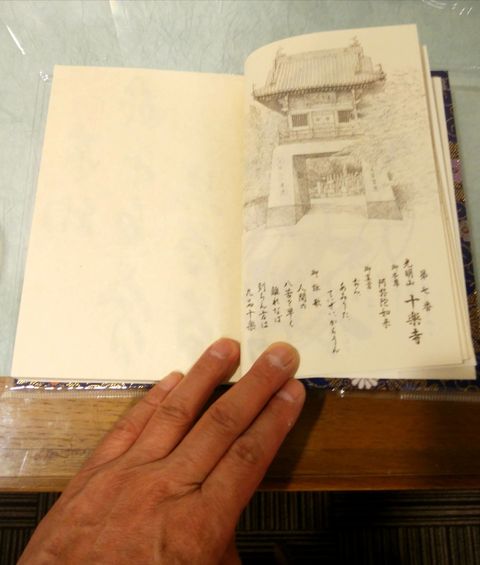 第七番
光明山 十楽寺
御本尊
阿弥陀如来
御真言
おん
あみりた
ていぜいからうん
御詠歌
人間の
八苦を早く
離れなば
到らん方は
九品十楽